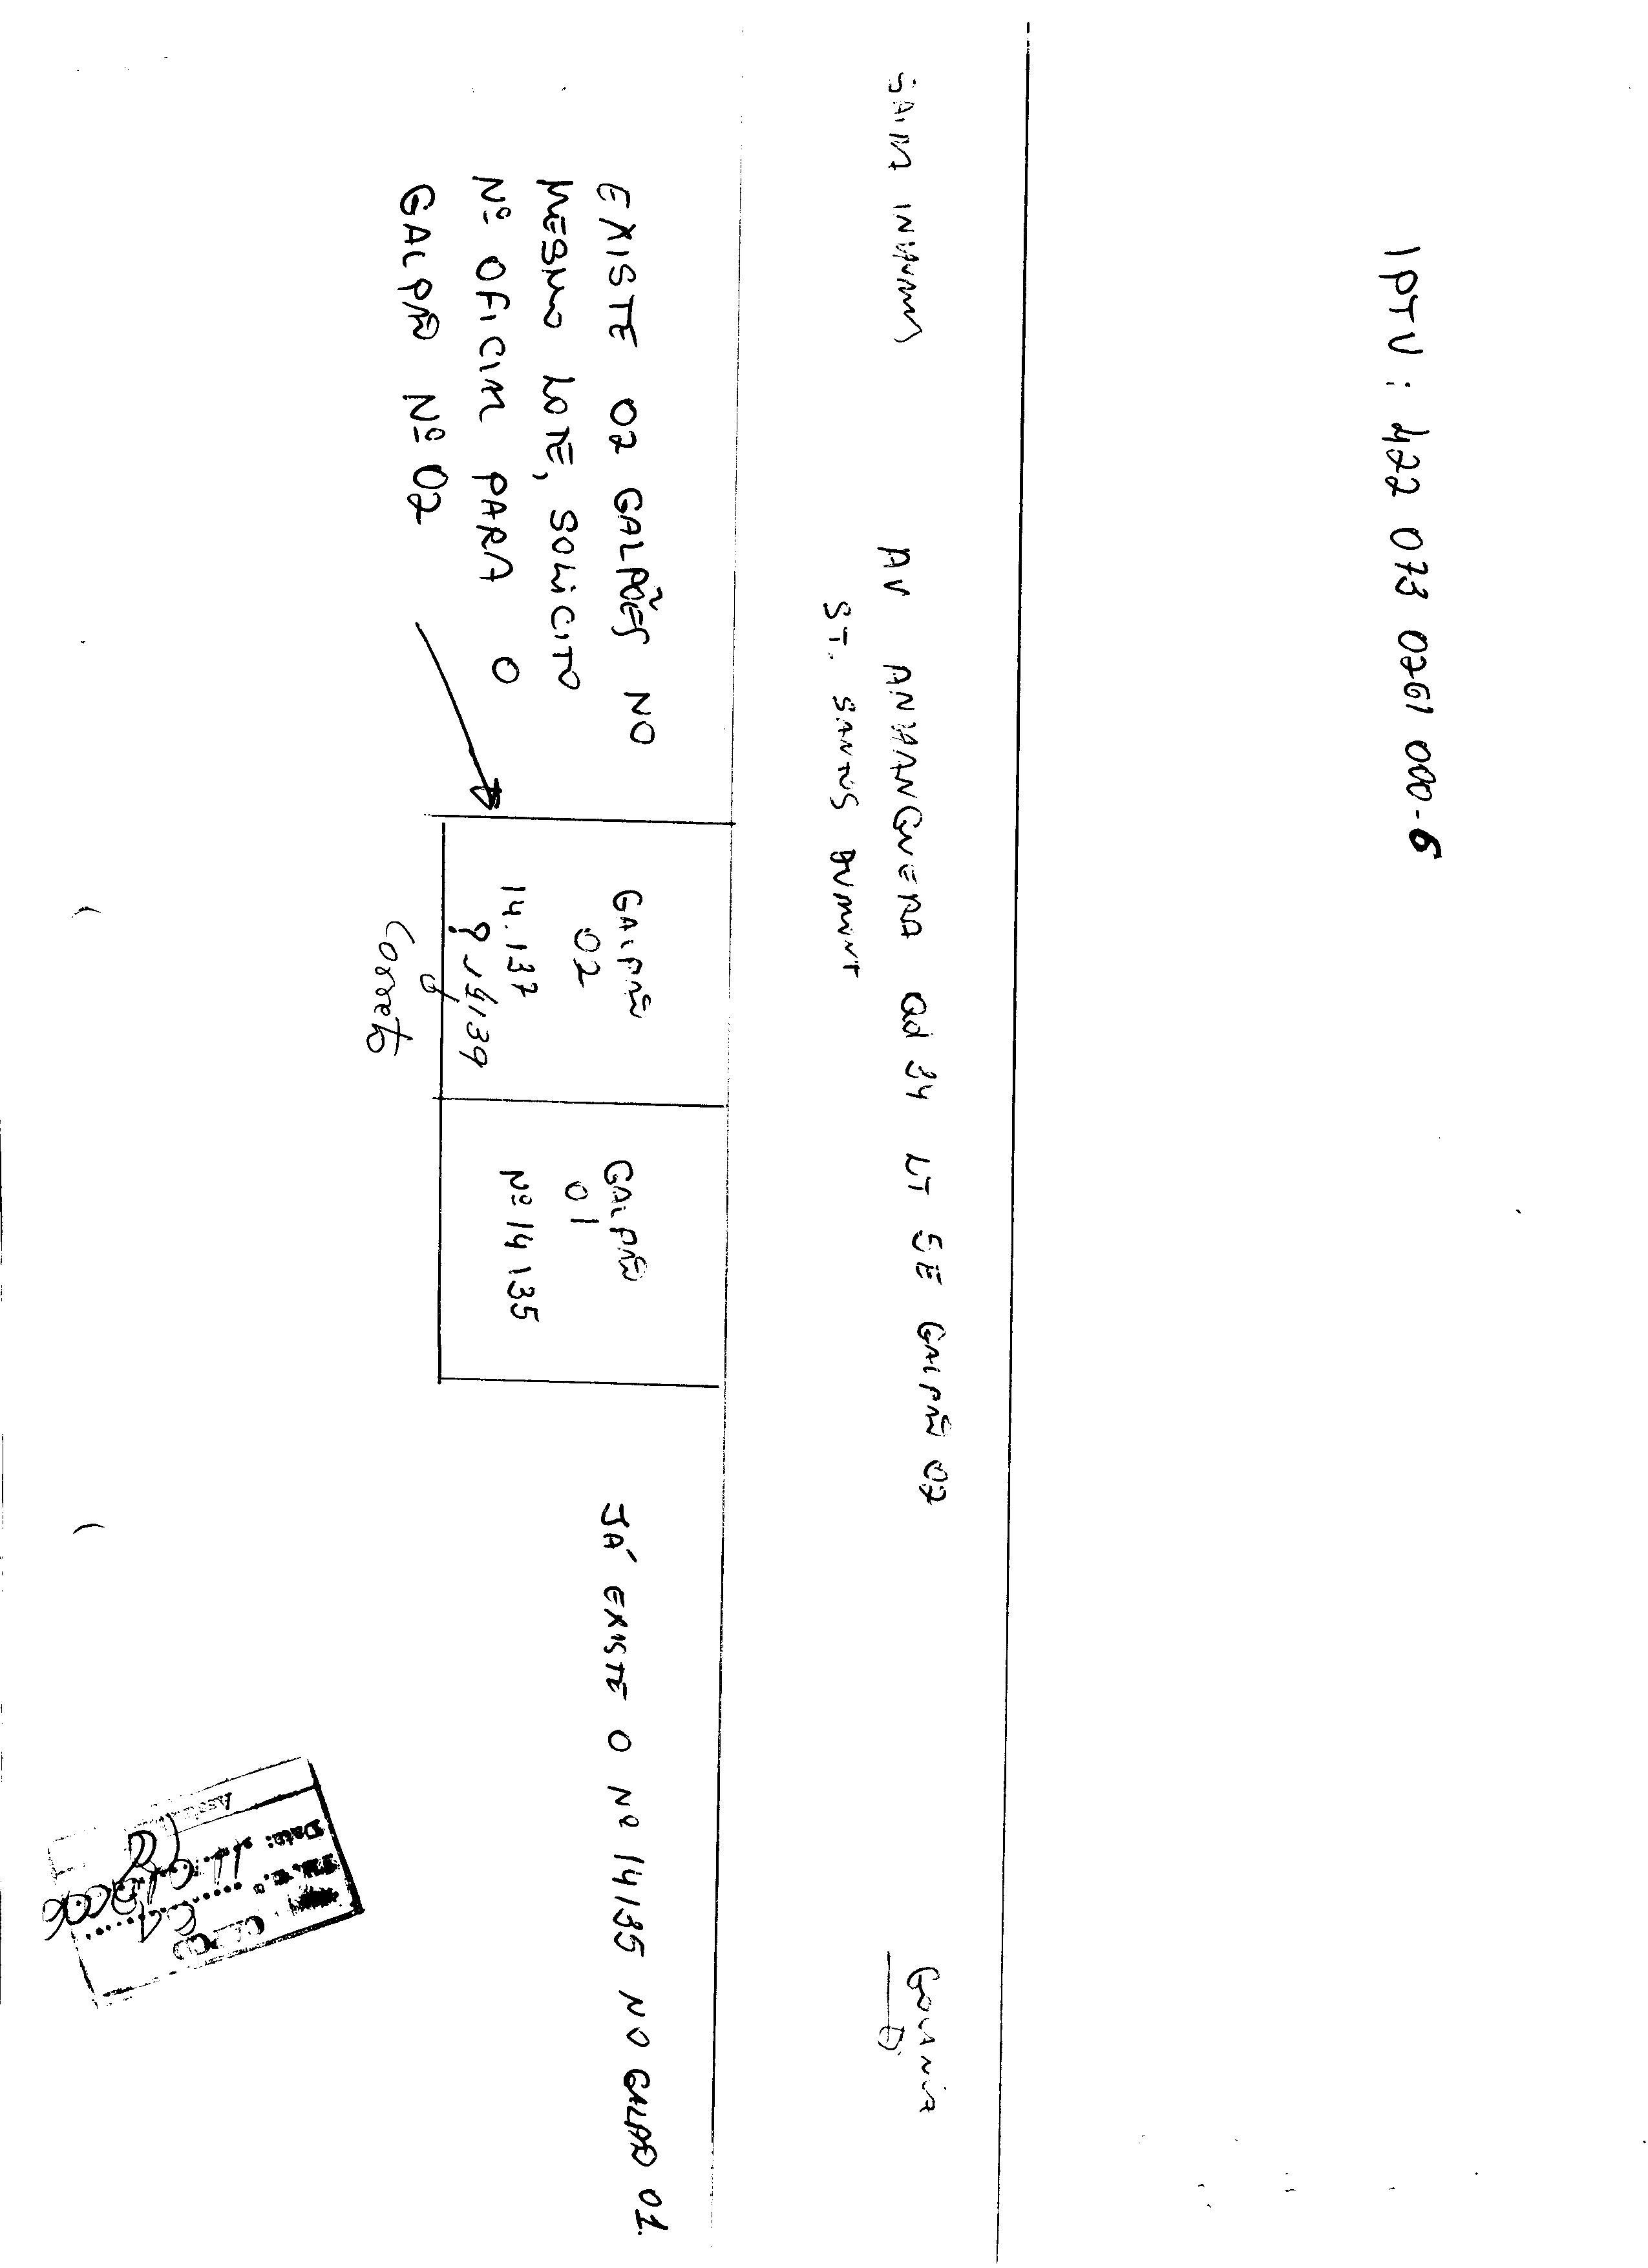 IPTU: 422 073 0261 000-6
SAIDA INHUMAS
AV ANHANGUERA Qd 34 LT 5E GALPÃO 02
ST. SANTOS DUMONT
GOIANIA
EXISTE 02 GALPÕES NO
MESMO LOTE, SOLICITO
Nº OFICIAL PARA O
GALPÃO Nº 02
GALPÃO
02
14.137
? 14139
Correto
GALPÃO
01
Nº 14135
JÁ EXISTE O Nº 14135 NO GALPÃO 01.
Data: